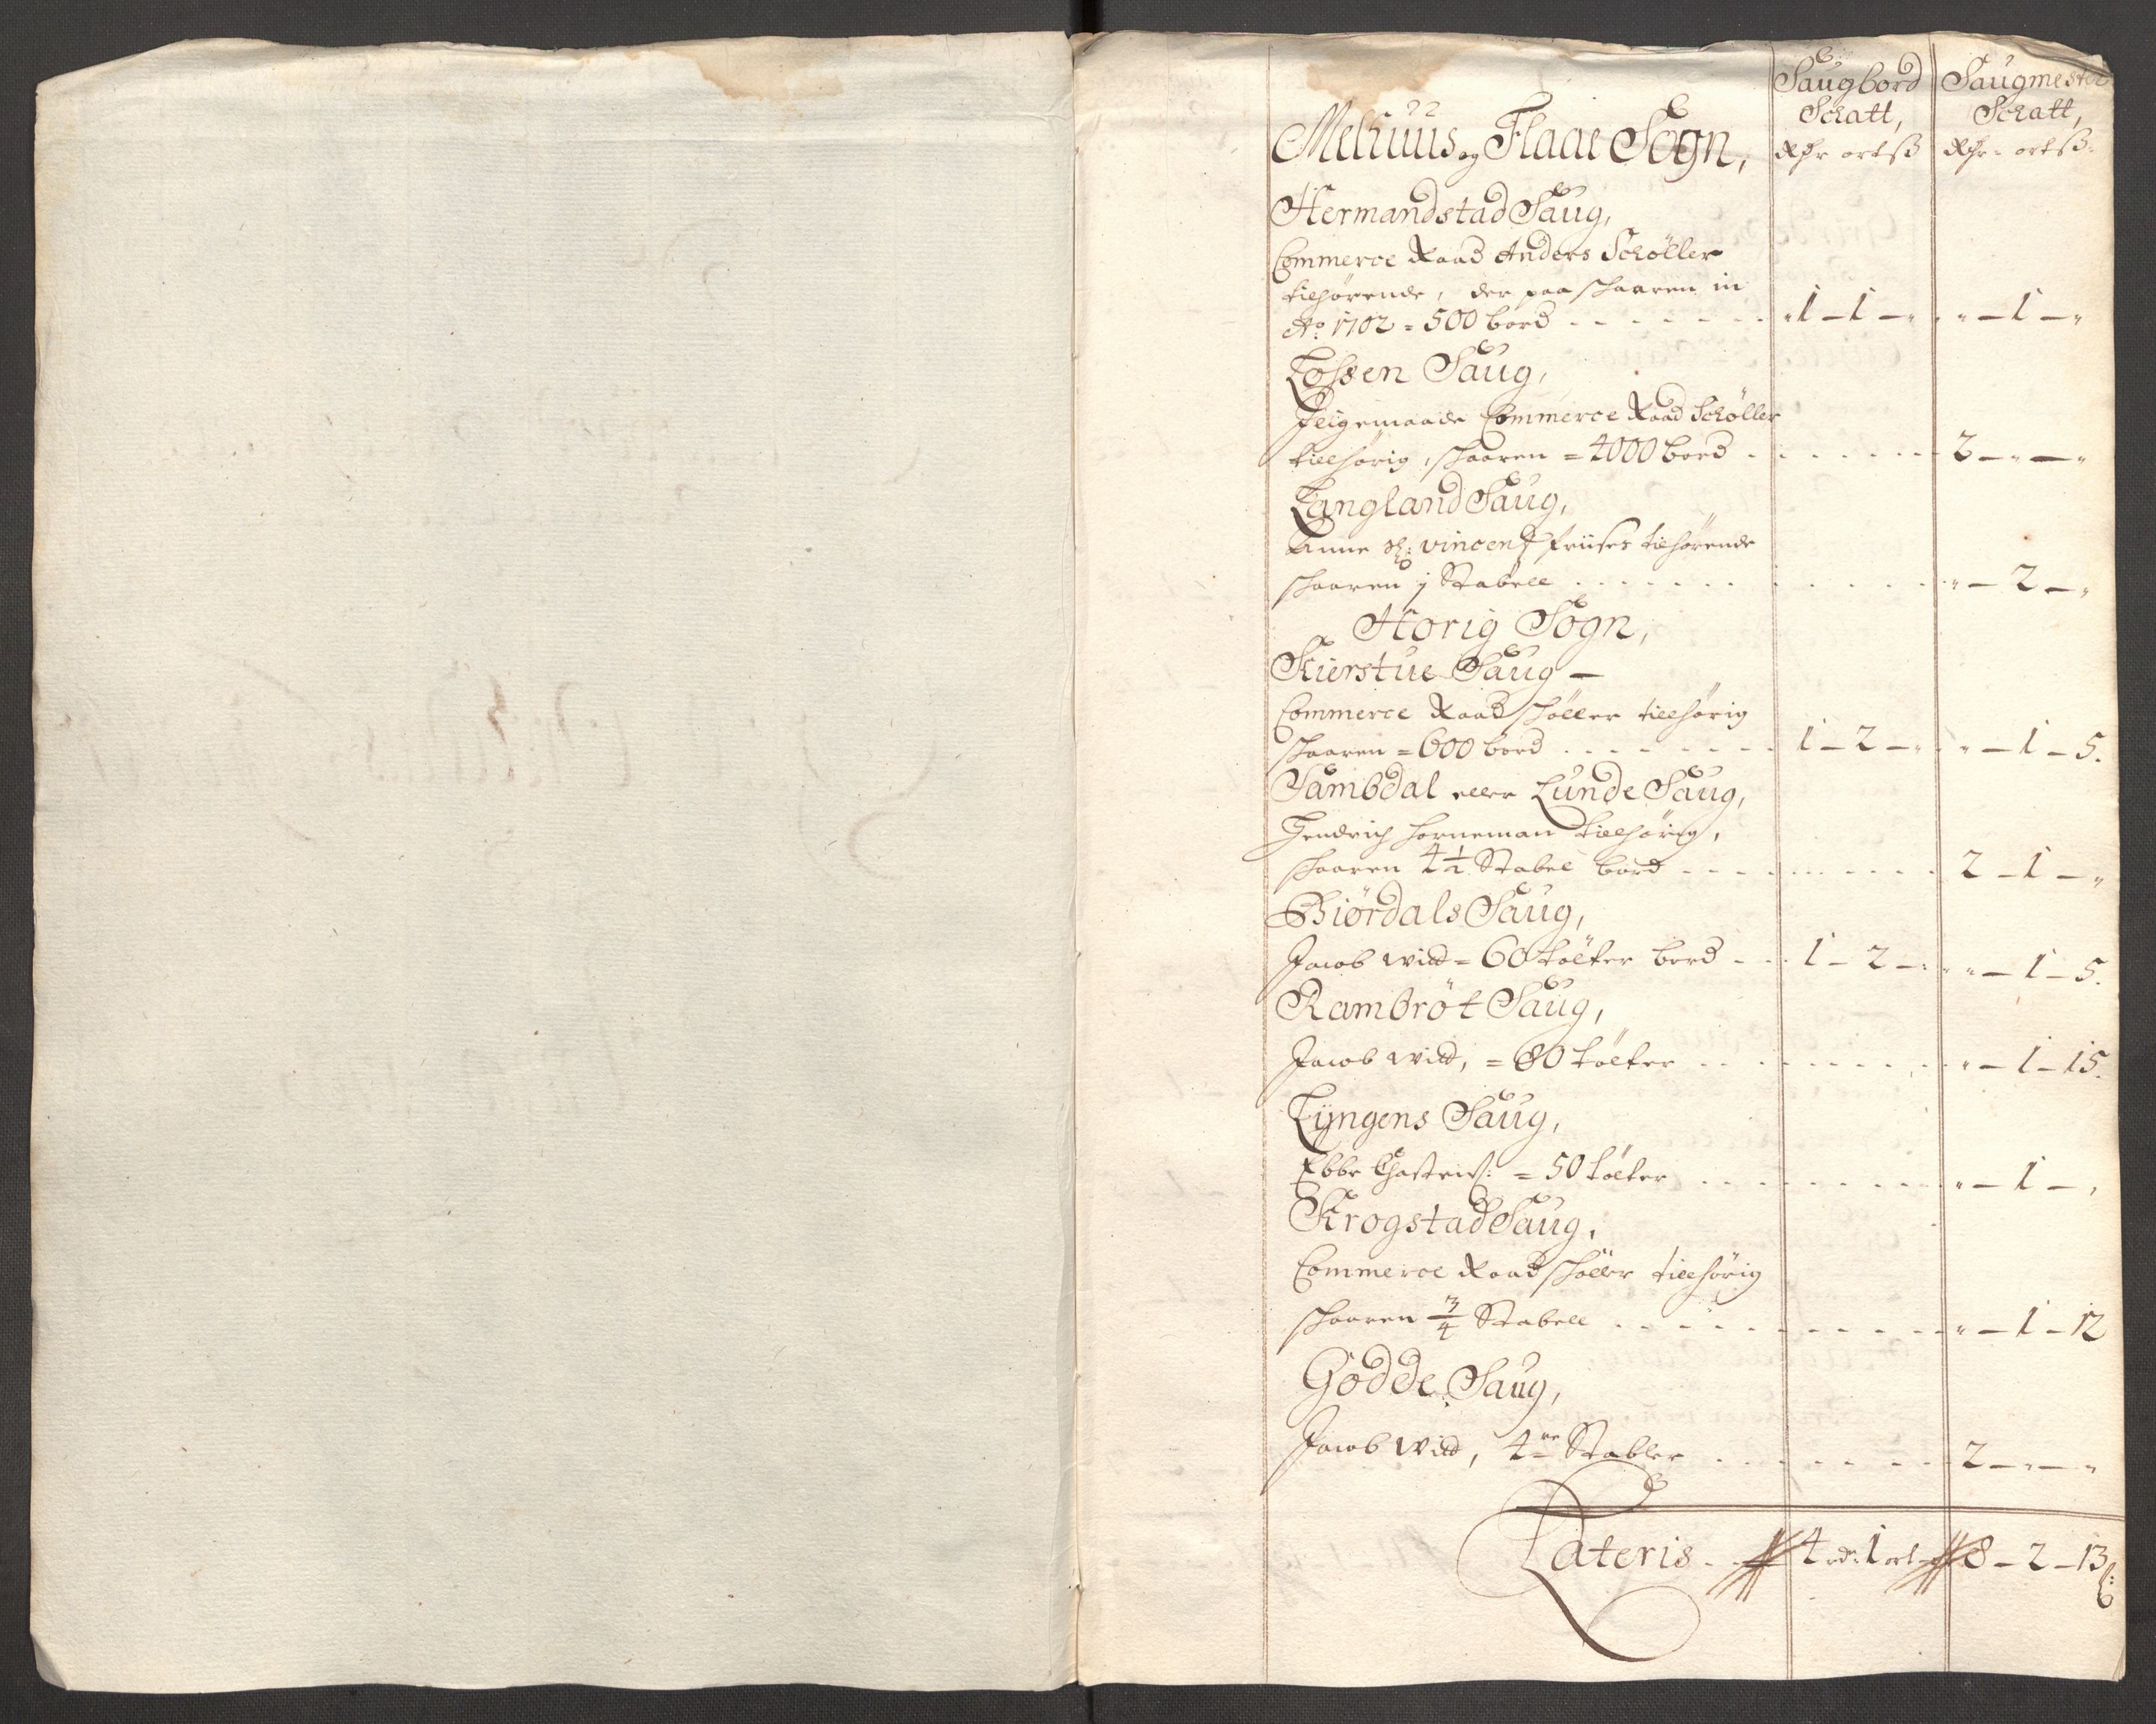 Saugbord Saugmester
Schatt, Schatt,
Melhuus og Flaae Sogn, Rdr ort ß Rdr - ort ß
Hermandstad Saug,
Commerce Raad Anders Schöller
tilhørende, der paa skaaren in
Ao. 1702 = 500 bord . . . . . . . „ 1 – 1 – „ „ – 1 – „
Lossen Saug,
Ligemaade Commerce Raad Schöller
tilhörig, skaaren = 4000 bord . . . . . . . 2 – „ – „
Langland Saug,
Anne Sl: Vincentz Friises tilhørende
skaaren 1 Stabell . . . . . . . . . . . „ – 2 – „
Horig Sogn,
Kierstue Saug –
Commerce Raad Schöller tillhørig
skaaren = 600 bord . . . . . . . . 1 – 2 – „ „ – 1 – 5.
Sambdal eller Lunde Saug,
Hendrich Horneman tillhörig,
skaaren 4½ Stabel bord . . . . . . . . 2 – 1 – „
Biördals Saug,
Jacob Witt = 60 tölter bord - . . 1 – 2 – „ „ – 1 – 5.
Rambröt Saug,
Jacob Witt, = 80 tolter . . . . . . . . „ – 1 – 15.
Lyngens Saug,
Ebbe Chastens: = 50 tolter . . . . . . . . „ – 1 – „
Krogstad Saug,
Commerce Raad Schöller tillhörig
skaaren ¾ Stabell . . . . . . . . . . „ – 1 – 12
Gödde Saug,
Jacob Witt, 4re Stabler . . . . . . . 2 – „ – „
Lateris . . 4 rdr 1 ort 8 – 2 – 13 ß: